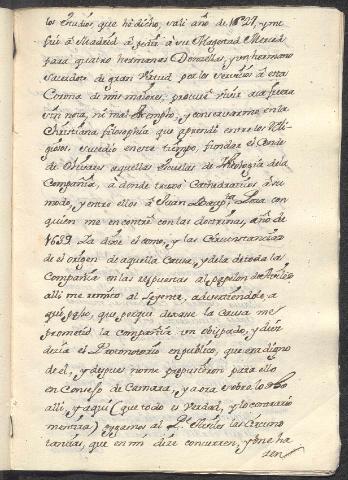 los studios, que hè dicho, salí año de 1627, y me
fuí â Madrid â pedir â su Magestad Merced
para quatro hermanas Donzellas, y un hermano
Sacerdote de gran Virtud, por los servicios â esta
Corona de mis maiores; procuré vivir acà fuera
sin nota, ni mal exemplo, y conservarme en la
Christiana filosophia que aprendí entre los Reli-
giosos. Sucedio en este tiempo, fundar el Conde
de Olivares aquellas Escuelas de Theologia de la
Compañia, â donde traxo Cathedraticos â su
modo, y entre ellos â Juan Bautista Poza con
quien me encontré con las doctrinas, año de
1632. Ya dixe el como, y las circunstancias
de el origen de aquella Causa, y de la de toda la
Compañia en las respuestas al papelon
alli me remito al Leyente, advirtiendole, a
qui solo, que porque dexase la causa me
prometió la Compañia un obispado, y diez
decia el Promotorio en publico, que era digno
de el, y despues no me propusieron para ello
en Consejo de Camara, y aora sobre lo dho
alli, y aqui (que todo es Verdad, y lo contrario
mentira) oygamos al Pe. las circuns
tancias, que en mi dize concurren, y me ha
zen